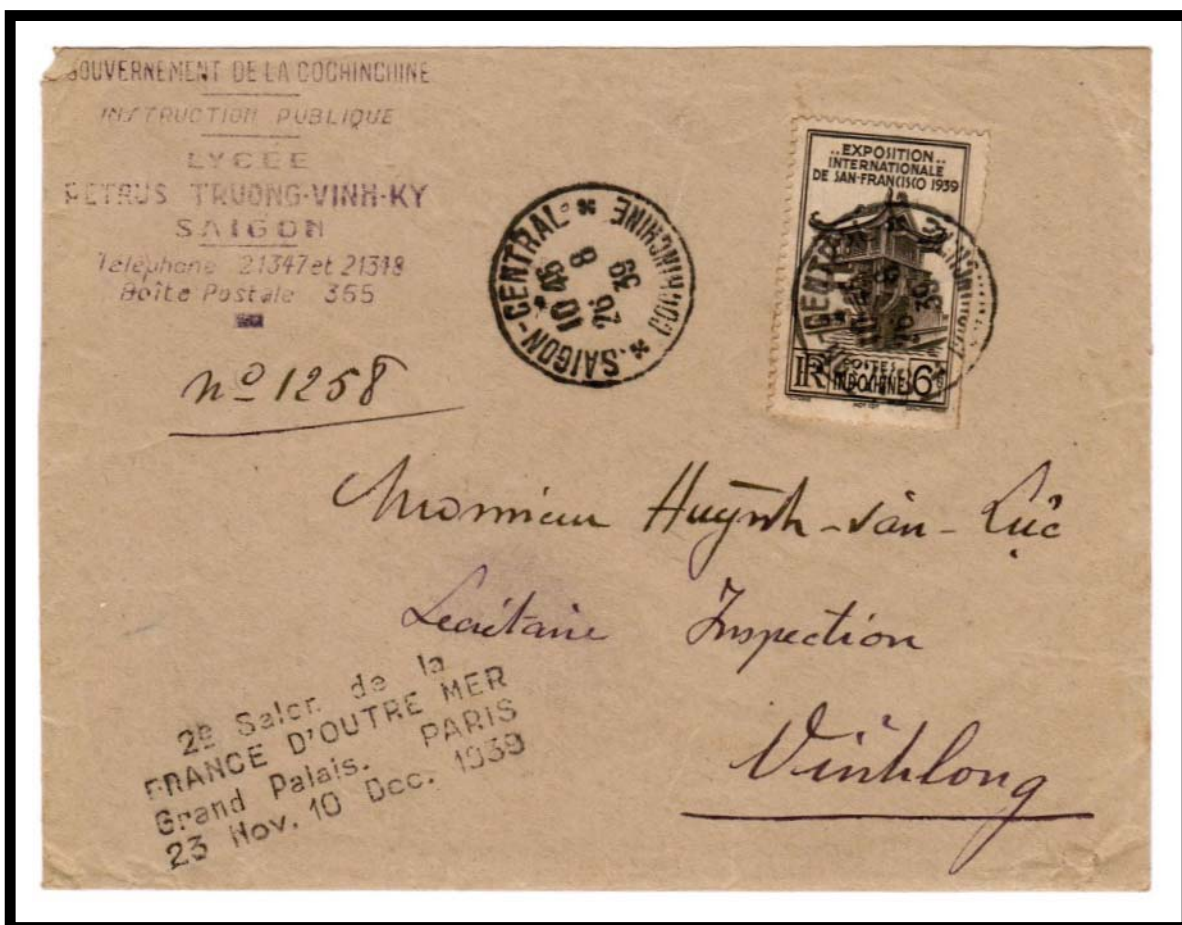 GOUVERNEMENT DE LA COCHINCHINE
INSTRUCTION PUBLIQUE
LYCEE
PETRUS TRUONG-VINH-KY
SAIGON
Téléphone 21347 et 21348
Boîte Postale 365
nº 1258
SAIGON-CENTRAL * COCHINCHINE *
10 45
26 8
39
..EXPOSITION..
INTERNATIONALE
DE SAN-FRANCISCO 1939
POSTES
RF INDOCHINE 6
CENTRAL
Monsieur Huỳnh-văn-Lục
Secrétaire Inspection
Vinhlong
2e Salon de la
FRANCE D'OUTRE MER
Grand Palais. PARIS
23 Nov. 10 Dec. 1939